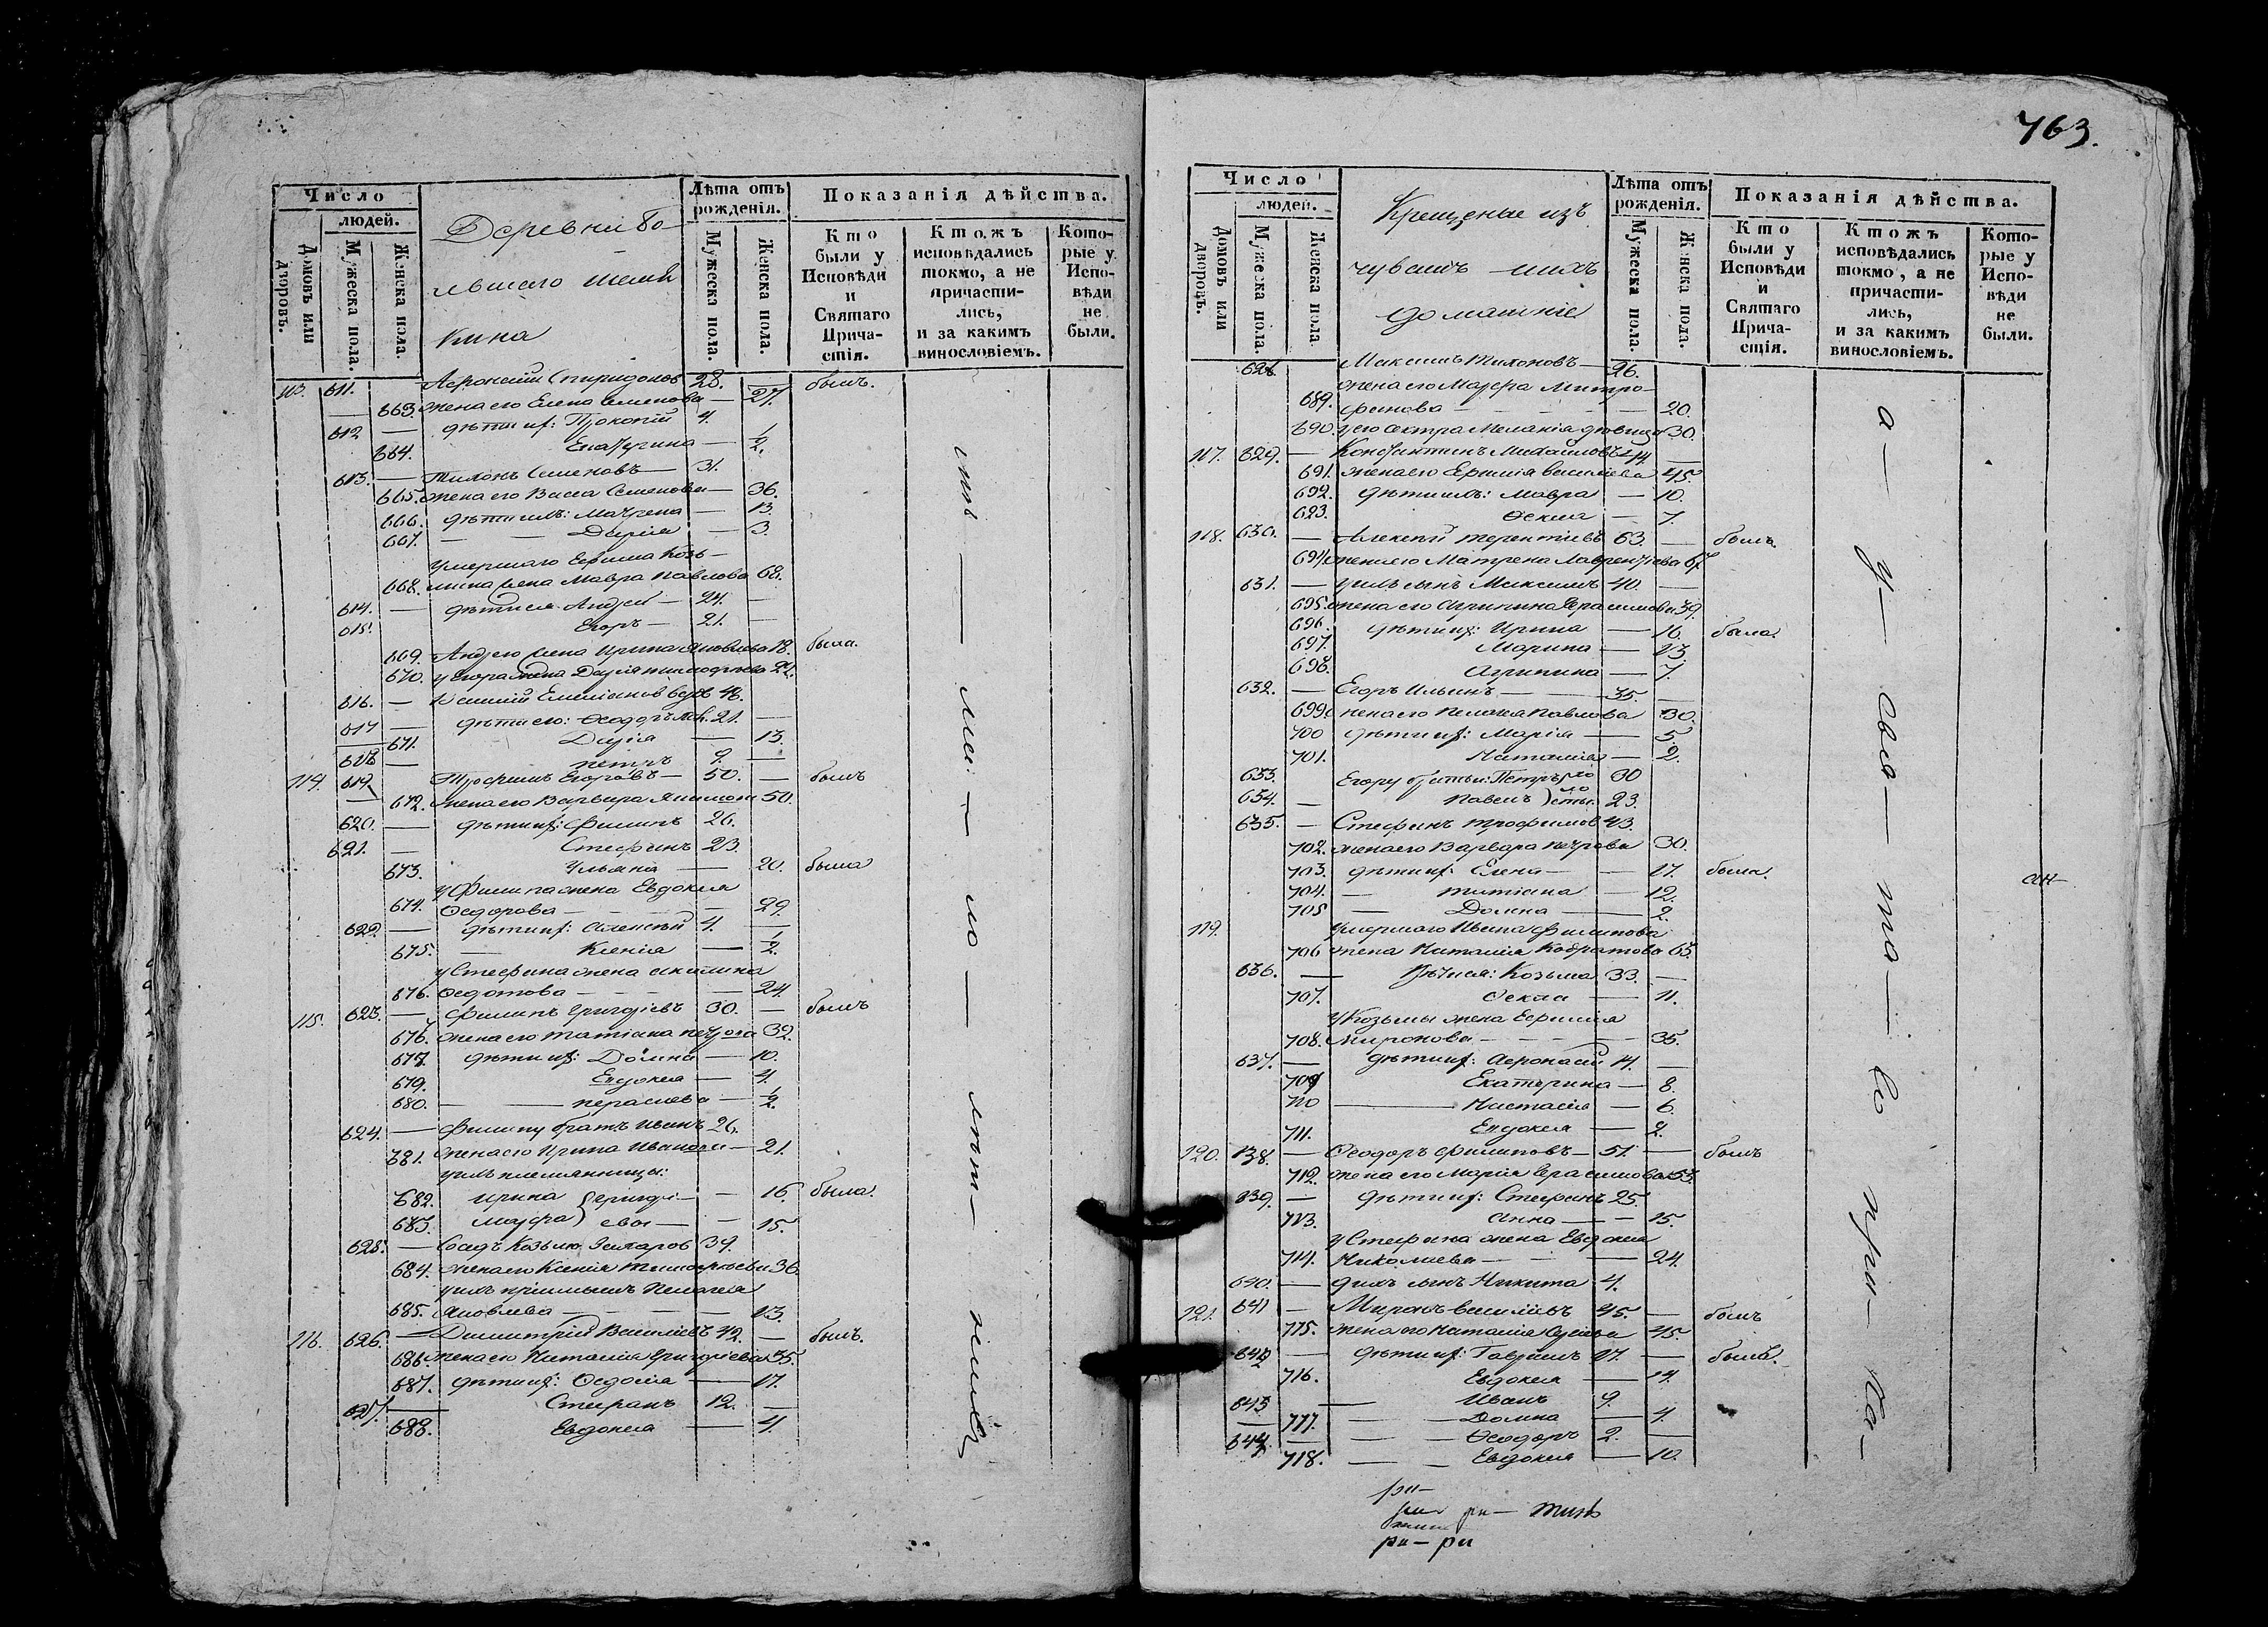 Число
людей.
Домовъ или дворовъ.
Мужеска пола.
Женска пола.
Деревни Бо-
льшаго Шемя
кина
Лѣта отъ рожденія.
Мужеска пола.
Женска пола.
Показанія дѣйства.
Кто были у Исповѣди и Святаго Прича-стія.
Ктожъ исповѣдались токмо, а не причасти-лись, и за какимъ винословіемъ.
Кото-рые у Испо-вѣди не были.
113. 611. Афонасий Спиридонов 28. былъ.
663. жена его Елена Семенова — 27.
612 — дѣти их: Прокопий 4.
664. Екатерина — 1/2.
613. — Тихонъ Семеновъ — 31.
665. жена его Васса Семенова — 36.
666. дѣти ихъ: Матрена — 13.
667. — — Дарія — 3.
умершаго Ефима Козь-
668. мина жена Мавра Павлова 68.
614. — дѣти ея Андрей — 24. —
615. Егоръ — 21. —
669. Андрея жена Ирина Яковлева 18. была.
670. у Егора жена Дарія Тимофеева 22.
616. — Емелианов вдов 48.
617 — дѣти его: Феодоръ 21. —
671. Дарія — 13.
618 — Петръ 9. —
114. 619. Трофимъ Егоровъ — 50. — былъ
672. жена его Варвара 50.
620. — дѣти их: Филипъ 26.
621. — Стефанъ 23.
673. Ульяна — 20. была
у Филипа жена Евдокия
674. Федорова — — — 29.
622. — дѣти их: Алексѣй 4. —
675. — Ксенія — 1/2.
у Стефана жена Акилина
676. Федотова — — — 24.
115. 623. — Филипъ Григорьевъ 30. — былъ
676. жена его Татиана Петрова 32.
677. дѣти их: Домна — 10.
679. Евдокея — 4.
680. — — — 1/2.
624. — Филипу братъ Иванъ 26.
681. жена его Ирина Иванова — 21.
у ихъ племянницы:
682. Ирина } Григорі — — 16 была.
683. Марфа } евы — — 15.
625. — Козьма Захаров 39.
684. жена его Ксенія Тимофеева 36.
у ихъ Пелагея
685. Яковлева — — — 13.
116. 626. — Димитрій Василіевъ 42. — былъ.
686. жена его Наталия Григориева 35.
687. дѣти их: Федосіа — 17.
627. — Стефанъ 12. —
688. Евдокея — 4.
763.
Число
людей.
Домовъ или дворовъ.
Мужеска пола.
Женска пола.
Крещеные изъ
чувашъ ихъ
домашніе
Лѣта отъ рожденія.
Мужеска пола.
Женска пола.
Показанія дѣйства.
Кто были у Исповѣди и Святаго Прича-стія.
Ктожъ исповѣдались токмо, а не причасти-лись, и за какимъ винословіемъ.
Кото-рые у Испо-вѣди не были.
628. Максимъ Тихоновъ — 26.
жена его Марфа Митро-
689. фанова — — — — 20.
690. у его сестра Меланія дѣвица 30.
117. 629. — Константинъ Михайловъ 44. —
691. жена его Ефимия Василиева 45.
692. дѣти ихъ: Мавра — 10.
693. Фекла — 7.
118. 630. — Алексѣй Терентиевъ 63. — былъ.
694. жена его Матрена Лаврентиева 67
631. — у ихъ сынъ Максимъ 40. —
695. жена его Агрипина Герасимова 39.
696. дѣти их: Ирина — 16. была.
697. Марина — 13
698. Агрипина — 7.
632. — Егоръ Ильинъ — 35. —
699. жена его Пелагея Павлова 30.
700 дѣти их: Марія — 5.
701. Наталия — 2.
633. Егору братья: Петръ 30
634. — Павелъ 23.
635. — Стефанъ Трофимов 43.
702. жена его Варвара Петрова 30.
703. дѣти их Елена — — 17. была.
704. — Татиана — 12.
705 — Домна — 2.
119. умершаго Ивана Филипова
706 жена Наталия 65.
636. — дѣти ея: Козьма 33. —
707. Фекла — 11.
у Козьмы жена Ефимия
708. Миронова — — — 35.
637. — дѣти их: Афонасий 14. —
709 Екатерина — 8.
710 — Настасия — 6.
711. Евдокея — 2.
120. 638. — Феодоръ Филиповъ — 51 — былъ
712. жена его Марія Герасимова 53.
639. — дѣти их: Стефанъ 25.
713. Анна — — 15.
у Стефана жена Евдокия
714. Николаева — — — 24.
640. — у ихъ сынъ Никита 4.
121. 641 — Миронъ Василиевъ 45. — былъ
715. жена его Наталия 45.
642 — дѣти их: Гаврилъ 17. — былъ.
716. Евдокея — 14.
643 — Иванъ 9.
717. — — Домна — 4.
644. — — — Феодоръ 2. —
718. — — Евдокея — 10.
ри-
ри- ри